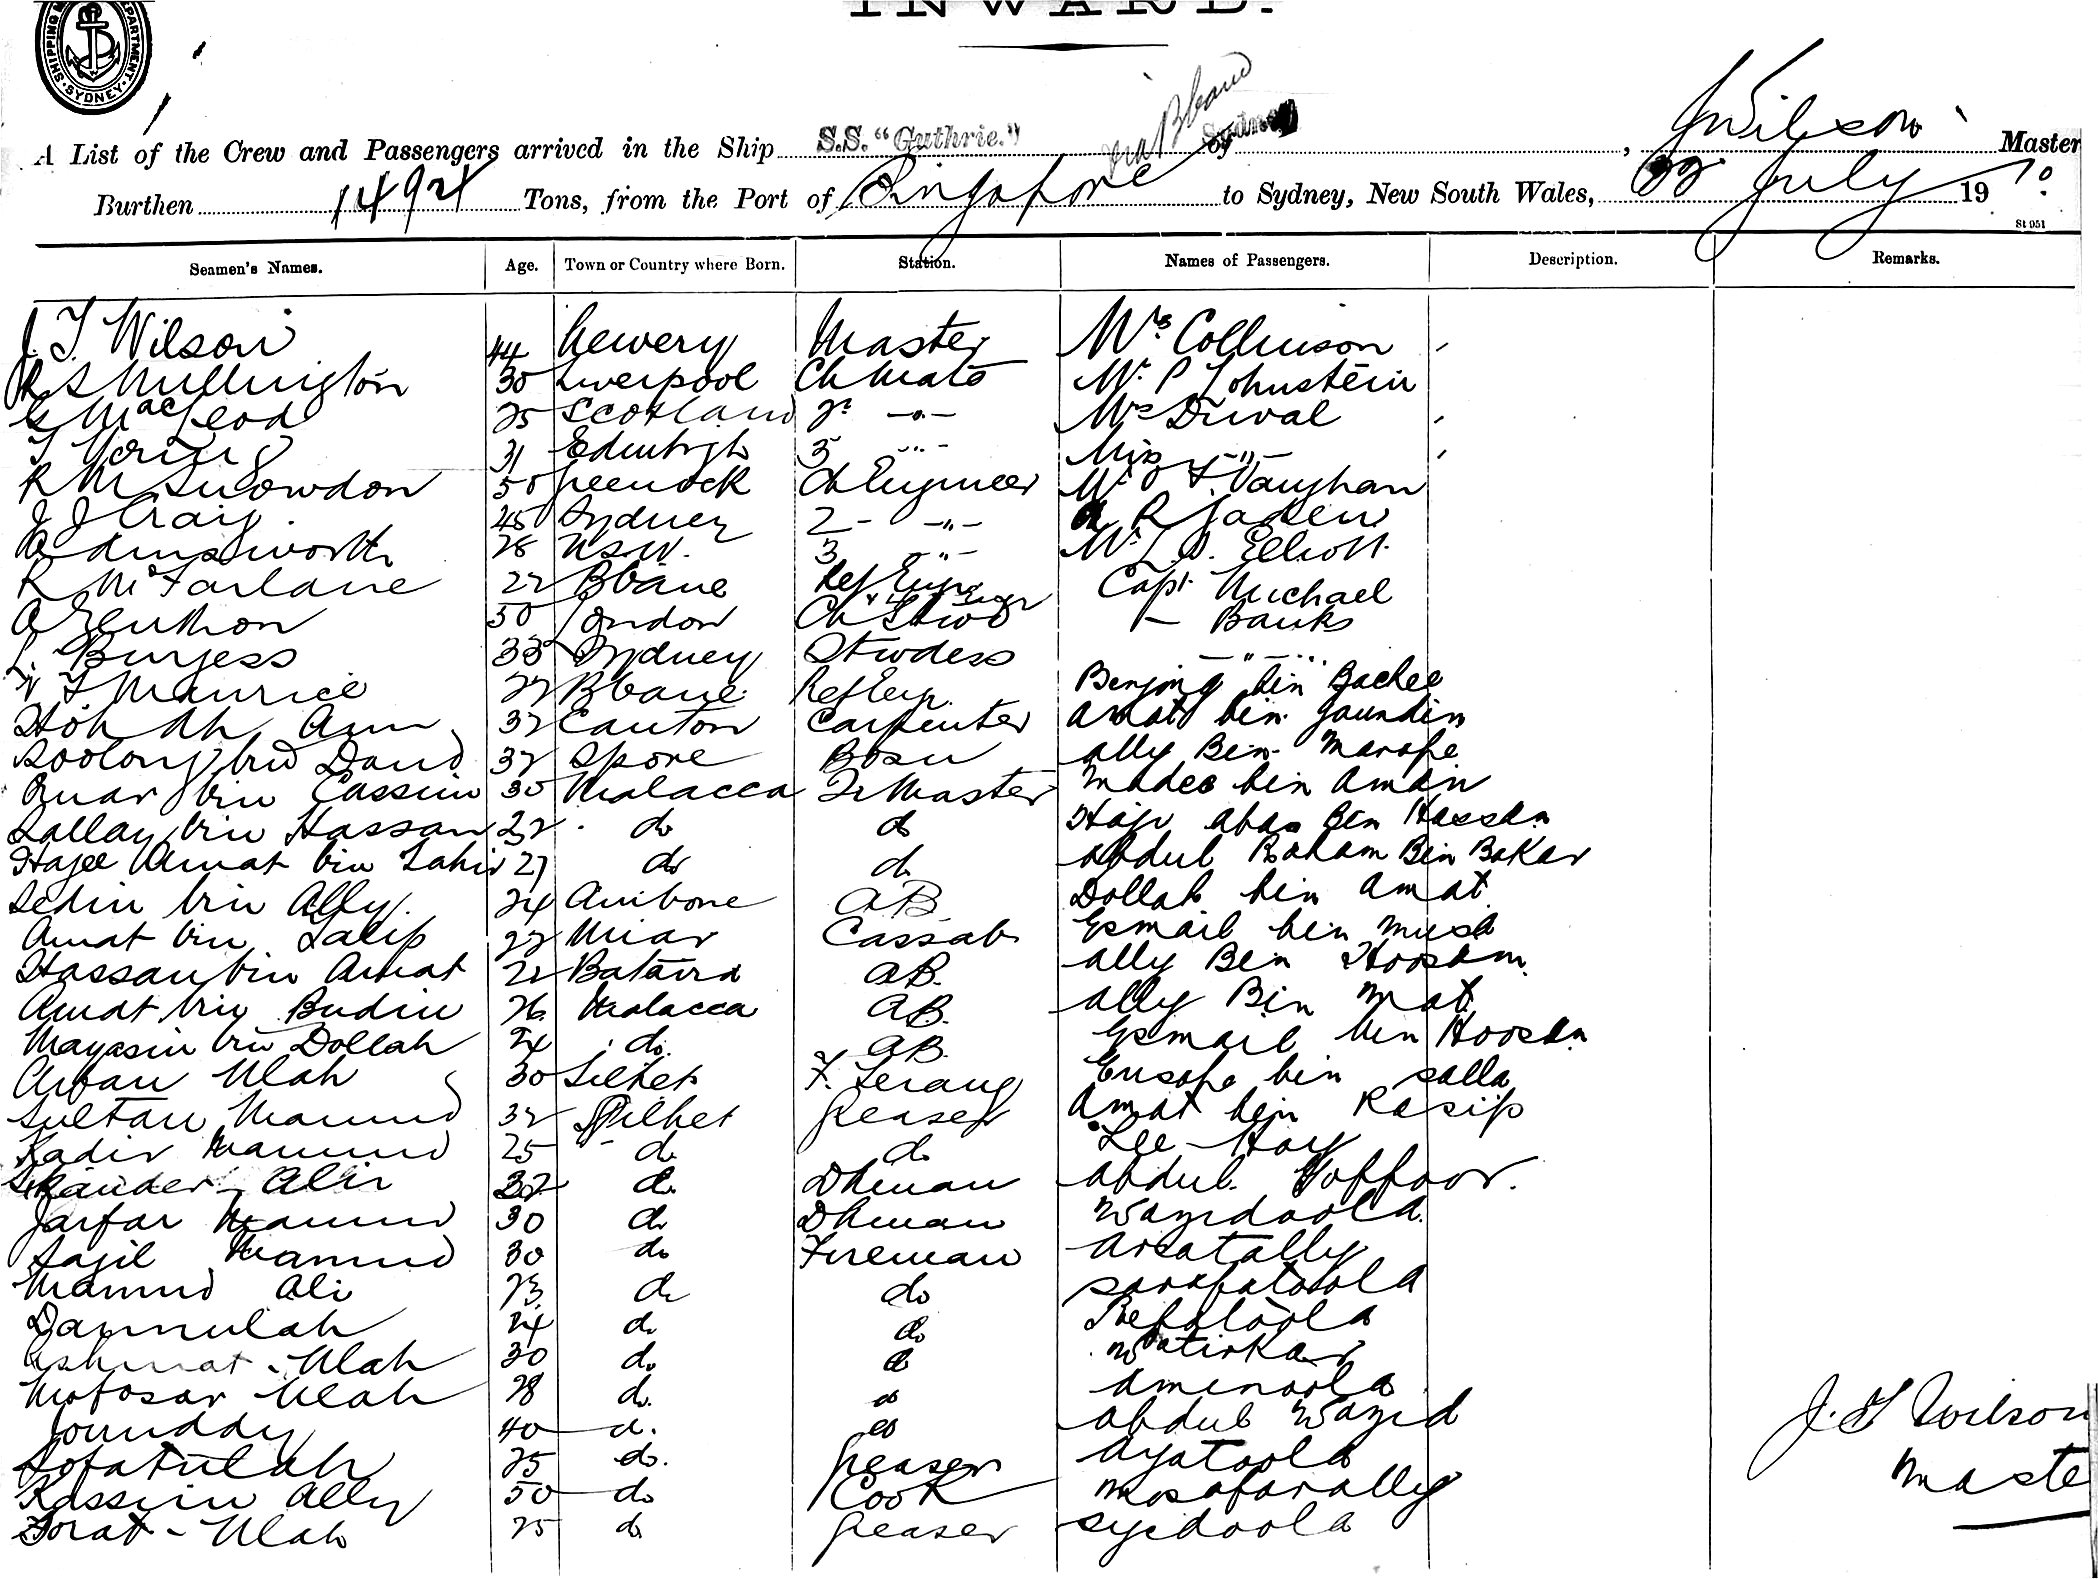 INWARD.
SHIPPING DEPARTMENT SYDNEY
via Bbane
A List of the Crew and Passengers arrived in the Ship S.S. "Guthrie." of Sydney, J Wilson Master
Burthen 1494 Tons, from the Port of Singapore to Sydney, New South Wales, 22 July 1910
St 051
Seamen's Names. Age. Town or Country where Born. Station. Names of Passengers. Description. Remarks.
J. T. Wilson 44 Newery Master Mrs Collinson
R S Mullington 30 Liverpool Ch Mate Mr P Lohnstein
G MacLeod 25 Scotland 2 -"- Mrs Duval
T 31 Edinbrgh 3 -"- Miss -"-
R M Snowdon 50 Greenock Ch Engineer Mr F. Vaughan
J J Craig. 45 Sydney 2 - -"- R Jaden
A Ainsworth 28 NSW. 3 -"- Mr L. D. Elliott
R McFarlane 22 Bbane Ref Engineer Capt Michael
A 50 London Ch Stwd - Banks
L. Burgess 33 Sydney Stwdess -"-
W T Maurice 27 Bbane Ref Engr. Benjong bin Bachee
Hoh Ah Ann 32 Canton Carpenter Amat bin Jaundin
Soolong bin Daud 32 Spore Bosn Ally Ben Marope
Omar bin Cassim 30 Malacca Qr Master Madee bin Aman
Sallay bin Hassan 32 do do Haji Abas Ben Hassan
Hajee Amat bin Tahir 27 do do Abdul Raham Ben Bakar
Sedin bin Ally. 24 Amibone AB Dollah bin Amat
Amat bin Latip 22 Miar Cassab Esmail bin Musa
Hassan bin Amat 22 Batavia AB. Ally Ben Hoosan
Amat bin Budin 26 Malacca AB. Ally Bin Mat
Mayasin bin Dollah 24 do. AB. Esmail bin Hoosan
Arfan Ulah 30 Silhet F. Serang Eusope bin Salla
Sultan Mamud 32 Silhet Greaser Amat bin Rasip
Kadir Mamud 25 do do Lee Hoy
Skander Alii 32 do Dkman Abdul Goffoor.
Jarfar Mamud 30 do Dkman Wazidoola
Sajil Mamud 30 do Fireman Arsatally
Mamud Ali 23 do do Sarafatoola
Damulah 24 do do Refatoola
Ashmat - Ulah 30 do do Watirkar
Mofosar Ulah 28 do. do Aminoola
Jounddy 40 do. do Abdul Wazid
Sofatulah 25 do. Greaser Ayatoola
Kassim Ally 50 do Cook Mosafarally
Torat - Ulah 25 do Greaser Syedoola
J. T Wilson
Maste